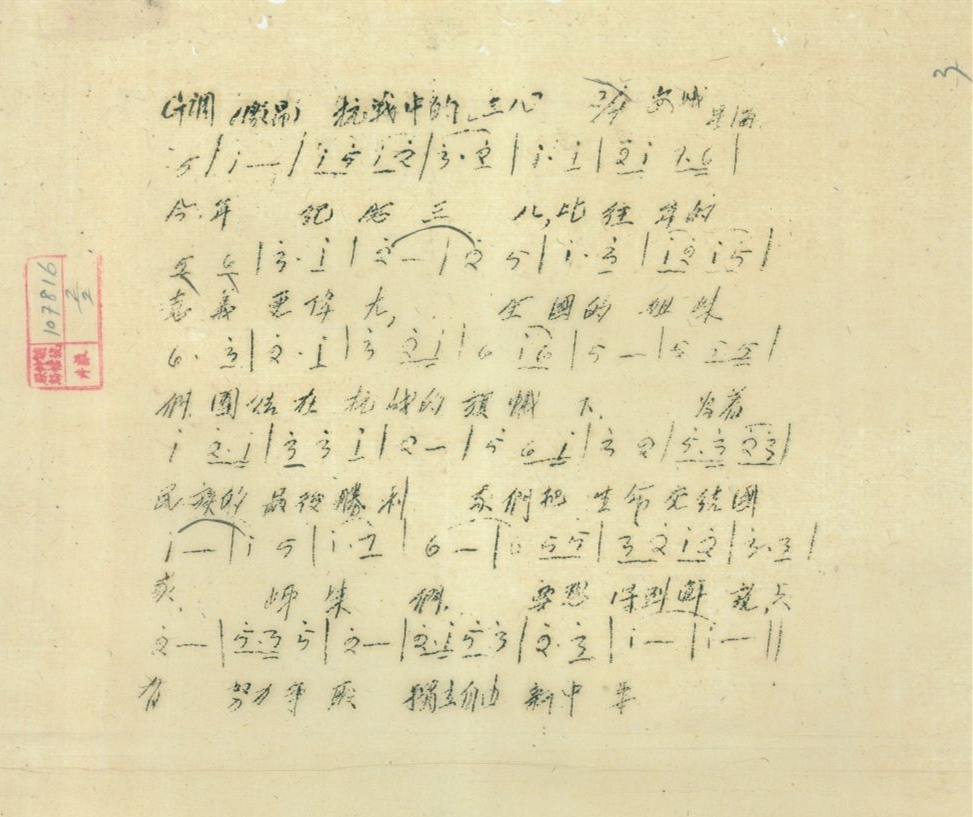 G调 (激昂) 抗战中的"三八" 2/4 安娥 星海
5 | i — | i 5 i 2 | 3 · 2 | i · i | 2 i 7 · 6 |
今年 紀念三八,比往年的
5 6 | 3 · i | 2 — | 2 5 | i · 3 | i 2 i 5 |
意義更偉大, 全國的姐妹
6 · 3 | 2 · i | 3 2 i | 6 i 6 | 5 — | 5 5 5 |
們 團結在抗战的旗幟下. 为着
i 2 · i | 3 3 i | 2 — | 5 6 i | 3 2 | 5 · 3 2 3 |
民族的最後勝利 我們把生命交給國
i — | i 5 | i · 7 | 6 — | 6 5 5 | 3 2 i 2 | 3 · 3 |
家. 姊妹們. 要想得到解放,只
2 — | 5 · 3 5 | 2 — | 2 · i 5 3 | 2 · 3 | i — | i — ||
有 努力爭取 獨立自由新中華
107816
2/2